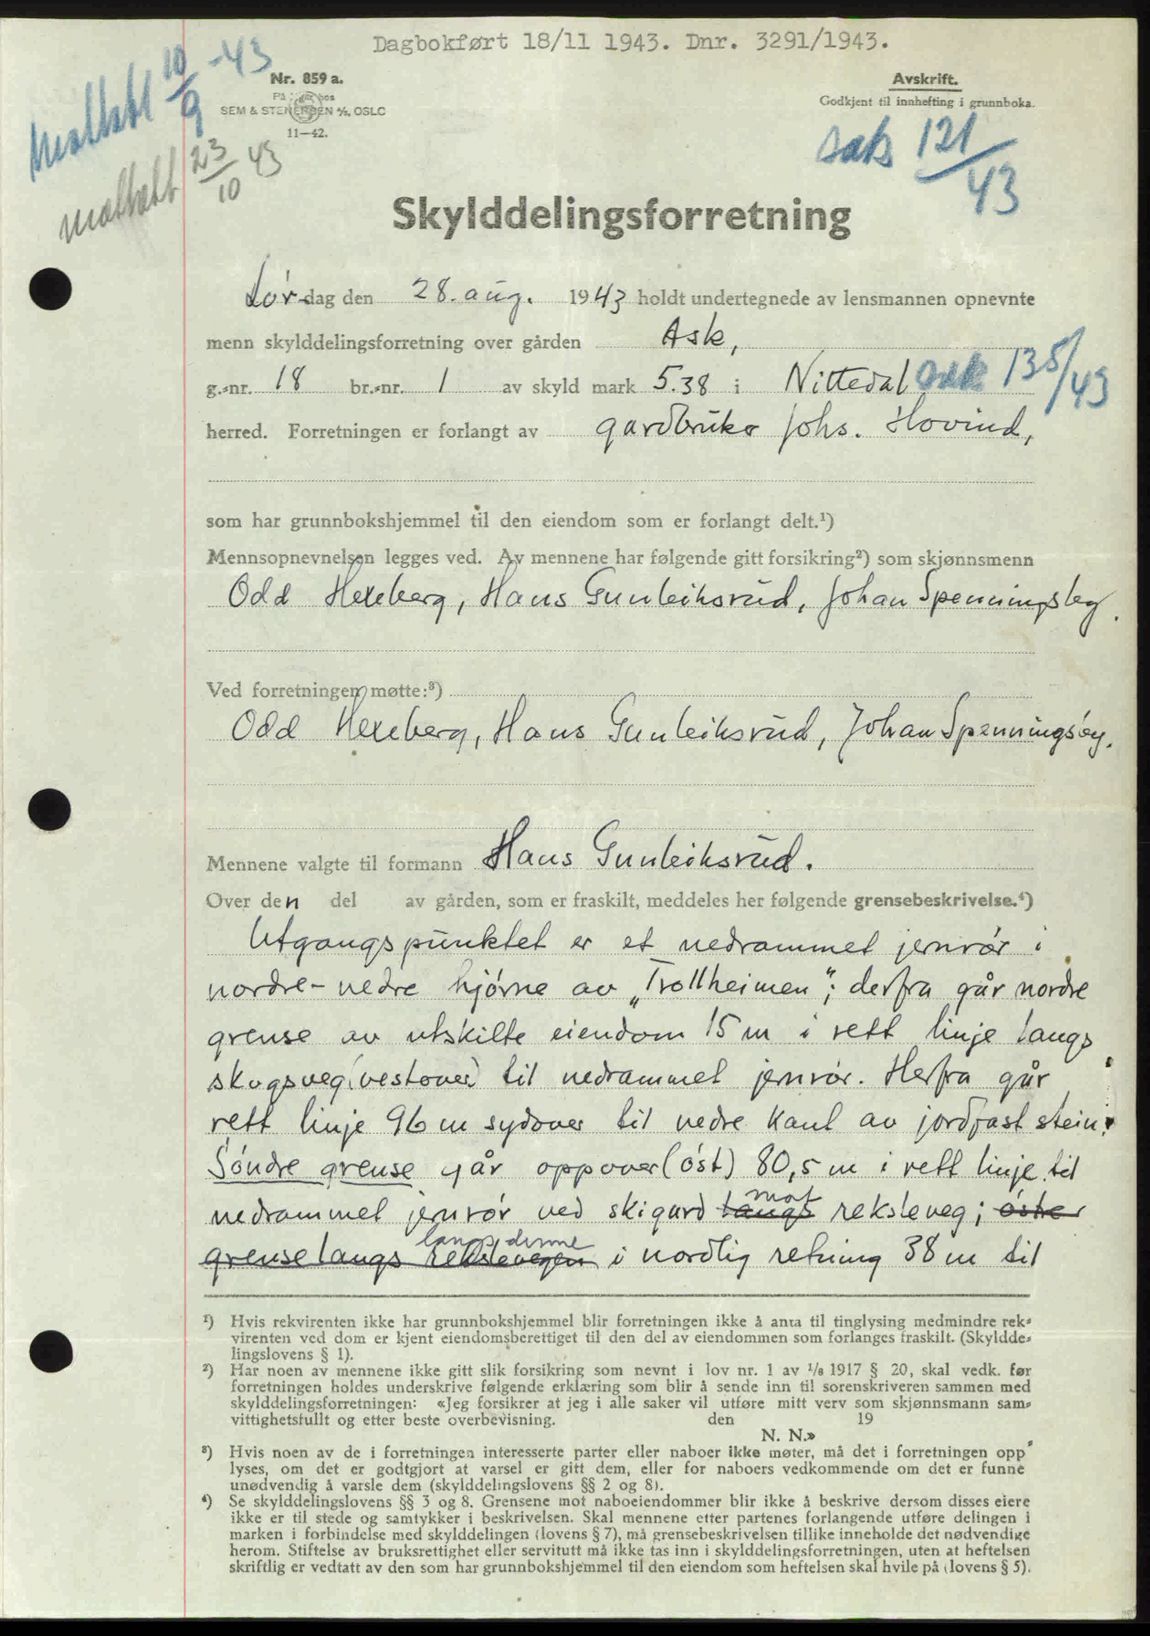 Dagbokført 18/11 1943. Dnr. 3291/1943.
Mottatt 10/9 -43
Nr. 859 a.
SEM & STENERSEN A/S, OSLO
11—42.
mottatt 23/10 43
Avskrift.
Godkjent til innhefting i grunnboka.
sak 121/43
Skylddelingsforretning
Lørdag den 28. aug. 1943 holdt undertegnede av lensmannen opnevnte
menn skylddelingsforretning over gården Ask,
g.-nr. 18 br.-nr. 1 av skyld mark 5.38 i Nittedal sak 135/43
herred. Forretningen er forlangt av gardbruker Johs. Hovind,
som har grunnbokshjemmel til den eiendom som er forlangt delt.¹)
Mennsopnevnelsen legges ved. Av mennene har følgende gitt forsikring²) som skjønnsmenn
Odd Hexeberg, Hans Gunleiksrud, Johan Spenningsby.
Ved forretningen møtte:³)
Odd Hexeberg, Hans Gunleiksrud, Johan Spenningsby.
Mennene valgte til formann Hans Gunleiksrud.
Over den del av gården, som er fraskilt, meddeles her følgende grensebeskrivelse.⁴)
Utgangspunktet er et nedrammet jernrør i
nordre-nedre hjørne av „Trollheimen”; derfra går nordre
grense av utskilte eiendom 15 m i rett linje langs
skogsveg (vestover) til nedrammet jernrør. Herfra går
rett linje 96 m sydover til nedre kant av jordfast stein.
Søndre grense går oppover (øst) 80,5 m i rett linje til
nedrammet jernrør ved skigard langs mot reksleveg; østre
grense langs rekslevegen langs denne i nordlig retning 38 m til
¹) Hvis rekvirenten ikke har grunnbokshjemmel blir forretningen ikke å anta til tinglysing medmindre rek-
virenten ved dom er kjent eiendomsberettiget til den del av eiendommen som forlanges fraskilt. (Skyldde-
lingslovens § 1).
²) Har noen av mennene ikke gitt slik forsikring som nevnt i lov nr. 1 av 1/8 1917 § 20, skal vedk. før
forretningen holdes underskrive følgende erklæring som blir å sende inn til sorenskriveren sammen med
skylddelingsforretningen: «Jeg forsikrer at jeg i alle saker vil utføre mitt verv som skjønnsmann sam-
vittighetsfullt og etter beste overbevisning. den 19
N. N.»
³) Hvis noen av de i forretningen interesserte parter eller naboer ikke møter, må det i forretningen opp-
lyses, om det er godtgjort at varsel er gitt dem, eller for naboers vedkommende om det er funne
unødvendig å varsle dem (skylddelingslovens §§ 2 og 8).
⁴) Se skylddelingslovens §§ 3 og 8. Grensene mot naboeiendommer blir ikke å beskrive dersom disses eiere
ikke er til stede og samtykker i beskrivelsen. Skal mennene etter partenes forlangende utføre delingen i
marken i forbindelse med skylddelingen (lovens § 7), må grensebeskrivelsen tillike inneholde det nødvendige
herom. Stiftelse av bruksrettighet eller servitutt må ikke tas inn i skylddelingsforretningen, uten at heftelsen
skriftlig er vedtatt av den som har grunnbokshjemmel til den eiendom som heftelsen skal hvile på (lovens § 5).